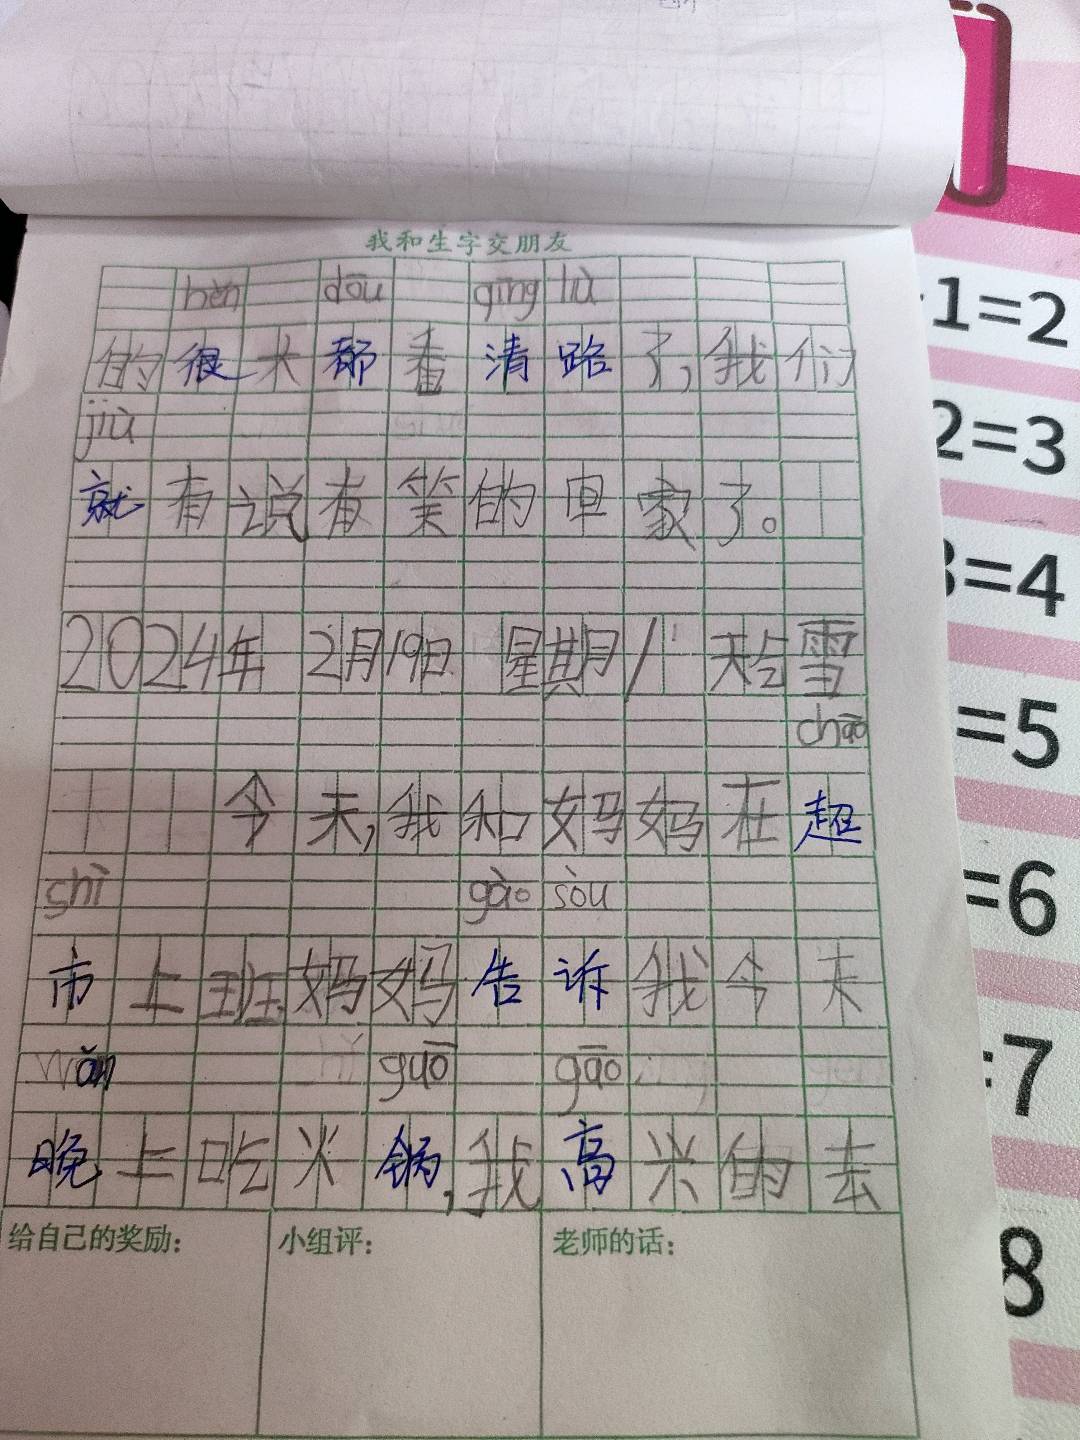 我和生字交朋友
hěn dōu qīng lù
的很大都看清路了,我们
jiù
就有说有笑的回家了。
2024年 2月19日 星期1 天气雪
chāo
今天,我和妈妈在超
shì gào sòu
市上班妈妈告诉我今天
wǎn guō gāo
晚上吃火锅,我高兴的去
给自己的奖励:
小组评:
老师的话:
1=2
2=3
3=4
=5
=6
=7
8